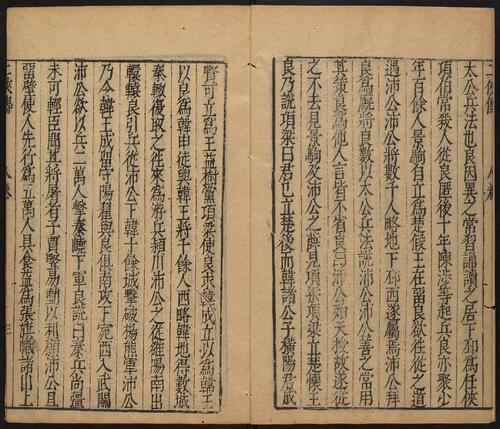 太公兵法也良因異之常習誦讀之居下邳爲任俠
項伯常殺人從良匿後十年陳涉等起兵良亦聚少
年百餘人景駒自立爲楚假王在留良欲往從之道
遇沛公沛公將數千人略地下邳西遂屬焉沛公拜
良爲廄將良數以太公兵法說沛公沛公善之常用
其策良爲他人言皆不省良曰沛公殆天授故遂從
之不去見景駒及沛公之薛見項梁項梁立楚懷王
良乃說項梁曰君已立楚後而韓諸公子橫陽君成
賢可立爲王益樹黨項梁使良求韓成立以爲韓王
以良爲韓申徒與韓王將千餘人西略韓地得數城
秦輒復取之往來爲游兵潁川沛公之從雒陽南出
轘轅良引兵從沛公下韓十餘城擊破楊熊軍沛公
乃令韓王成留守陽翟與良俱南攻下宛西入武關
沛公欲以兵二萬人擊秦嶢下軍良說秦兵尚彊
未可輕臣聞其將屠者子賈豎易動以利願沛公且
留壁使人先行爲五萬人具食益爲張旗幟諸山上
俠傳
八卷
三